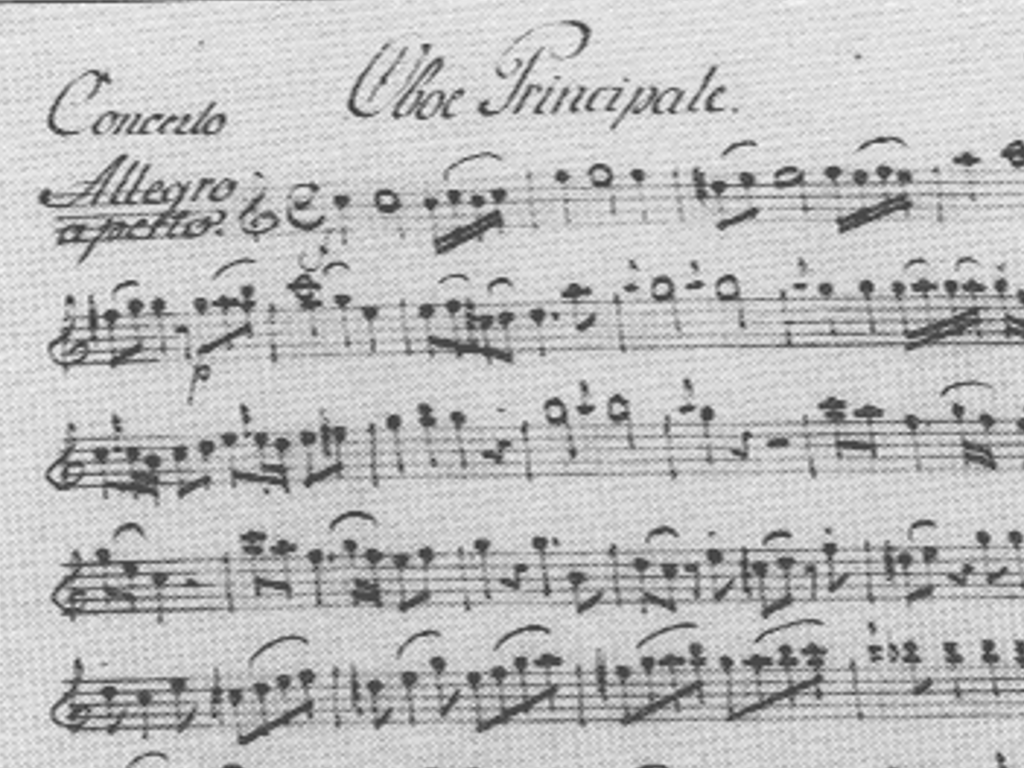 Oboe Principale.
Concerto
Allegro
aperto.
p